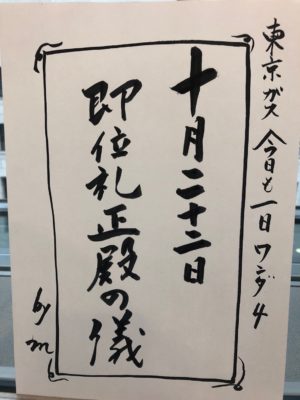 東京ガス 今日も一日 ワンダ4
十月二十二日
即位礼正殿の儀
by m